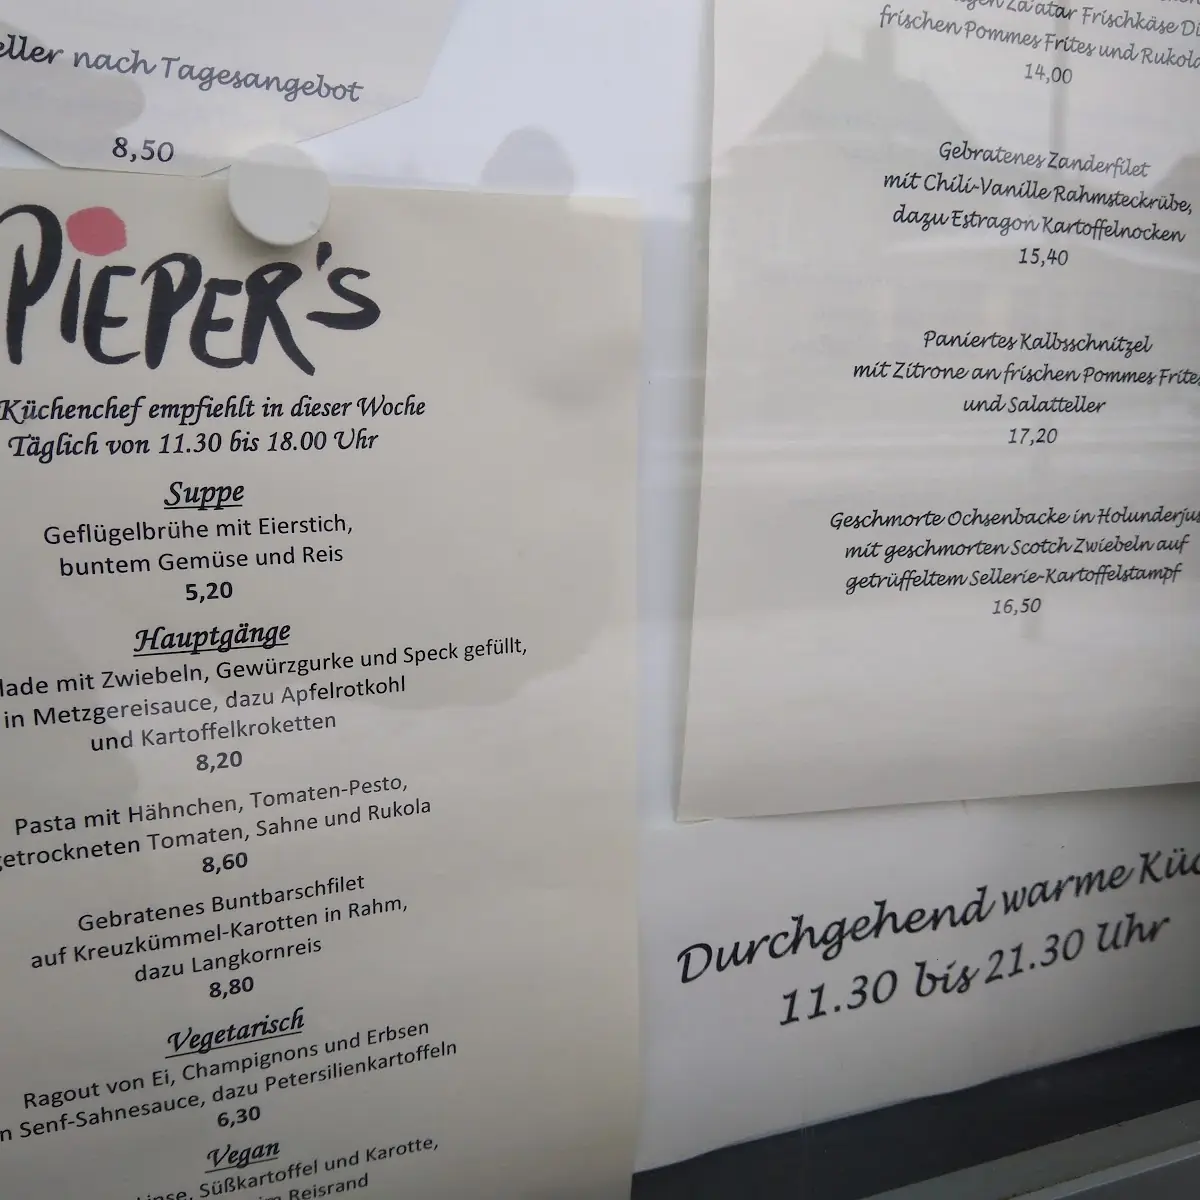 nach Tagesangebot
8,50
PIEPER'S
Küchenchef empfiehlt in dieser Woche
Täglich von 11.30 bis 18.00 Uhr
Suppe
Geflügelbrühe mit Eierstich,
buntem Gemüse und Reis
5,20
Hauptgänge
mit Zwiebeln, Gewürzgurke und Speck gefüllt,
in Metzgereisauce, dazu Apfelrotkohl
und Kartoffelkroketten
8,20
Pasta mit Hähnchen, Tomaten-Pesto,
getrockneten Tomaten, Sahne und Rukola
8,60
Gebratenes Buntbarschfilet
auf Kreuzkümmel-Karotten in Rahm,
dazu Langkornreis
8,80
Vegetarisch
Ragout von Ei, Champignons und Erbsen
Senf-Sahnesauce, dazu Petersilienkartoffeln
6,30
Vegan
Süßkartoffel und Karotte,
Reisrand
Za'atar Frischkäse
frischen Pommes Frites und Rukola
14,00
Gebratenes Zanderfilet
mit Chili-Vanille Rahmsteckrübe,
dazu Estragon Kartoffelnocken
15,40
Paniertes Kalbsschnitzel
mit Zitrone an frischen Pommes Frites
und Salatteller
17,20
Geschmorte Ochsenbacke in Holunderjus
mit geschmorten Scotch Zwiebeln auf
getrüffeltem Sellerie-Kartoffelstampf
16,50
Durchgehend warme
11.30 bis 21.30 Uhr